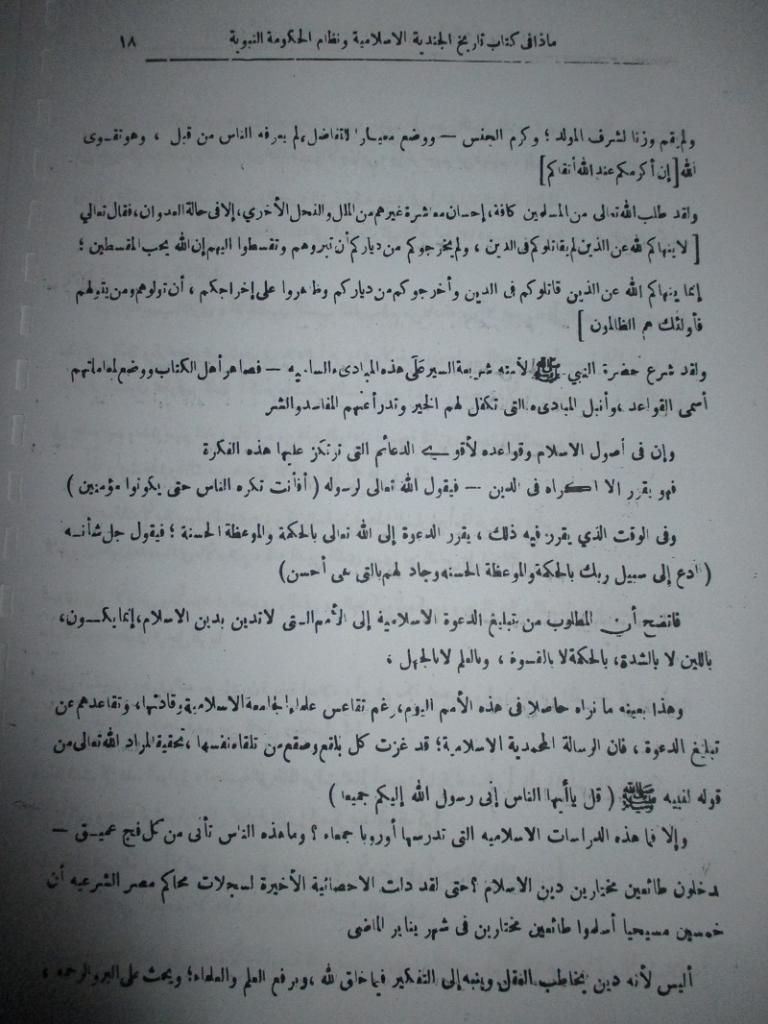 ماذا فى كتاب تاريخ الجندية الاسلامية ونظام الحكومة النبوية ١٨
ولم يقم وزنا لشرف المولد ؛ وكرم الجنس — ووضع معيارا لاتفاضل، لم يعرفه الناس من قبل ، وهو تقـوى
الله [إن أكرمكم عند الله أتقاكم]
ولقد طلب الله تعالى من المسلمين كافة، إحسان معاشرة غيرهم من الملل والنحل الأخري، إلا فى حالة العدوان، فقال تعالي
[ لا ينهاكم لله عن الذين لم يقاتلوكم فى الدين ، ولم يخرجوكم من دياركم أن تبروهم وتقسطوا اليهم إن الله يحب المقسطين ؛
إنما ينهاكم الله عن الذين قاتلوكم فى الدين وأخرجوكم من دياركم وظاهروا على إخراجكم ، أن تولوهم ومن يتولهم
فأولئك هم الظالمون ]
ولقد شرع حضرة النبي ﷺ لأمته شريعة السير على هذه المبادىء السامية — فصاهر أهل الكتاب ووضع لمعاملاتهم
أسمى القواعد ، وأنبل المبادىء التى تكفل لهم الخير وتدرأ عنهم المفاسد والشر
وإن فى أصول الاسلام وقواعده لأقوى الدعائم التى ترتكز عليها هذه الفكرة
فهو يقرر الا اكراه فى الدين — فيقول الله تعالى لرسوله ( أفأنت تكره الناس حتى يكونوا مؤمنين )
وفى الوقت الذي يقرر فيه ذلك ، يقرر الدعوة إلى الله تعالى بالحكمة والموعظة الحسنة ؛ فيقول جل شأنـه
( ادع إلى سبيل ربك بالحكمة والموعظة الحسنه وجادلهم بالتى هى أحسن)
فاتضح أن المطلوب من تبليغ الدعوة الاسلامية إلى الأمم التى لا تدين بدين الاسلام، إنما يكـون،
باللين لا بالشدة، بالحكمة لا بالقسوة ، وبالعلم لا بالجهل ،
وهذا بعينه ما نراه حاصلا فى هذه الأمم اليوم، رغم تقاعس علماء الجامعة الاسلامية وقادتها، وتقاعدهم عن
تبليغ الدعوة ، فان الرسالة المحمدية الاسلامية؛ قد غزت كل بلقع وصقع من تلقاء نفسها ، تحقيقا لمراد الله تعالى من
قوله لنبيه ﷺ ( قل ياأيها الناس إنى رسول الله إليكم جميعا )
وإلا فما هذه الدراسات الاسلاميه التى تدرسها أوروبا جمعاء ؟ وما هذه الناس تأتى من كل فج عميـق —
يدخلون طائعين مختارين دين الاسلام ؟ حتى لقد دلت الاحصائية الأخيرة لسجلات محاكم مصر الشرعيه أن
خمسين مسيحيا أسلموا طائعين مختارين فى شهر يناير الماضى
أليس لأنه دين يخاطب العقل وينبه إلى التفكير فيما خلق لله ، ويرفع العلم والعلماء؛ ويحث على البر والرحمه ،